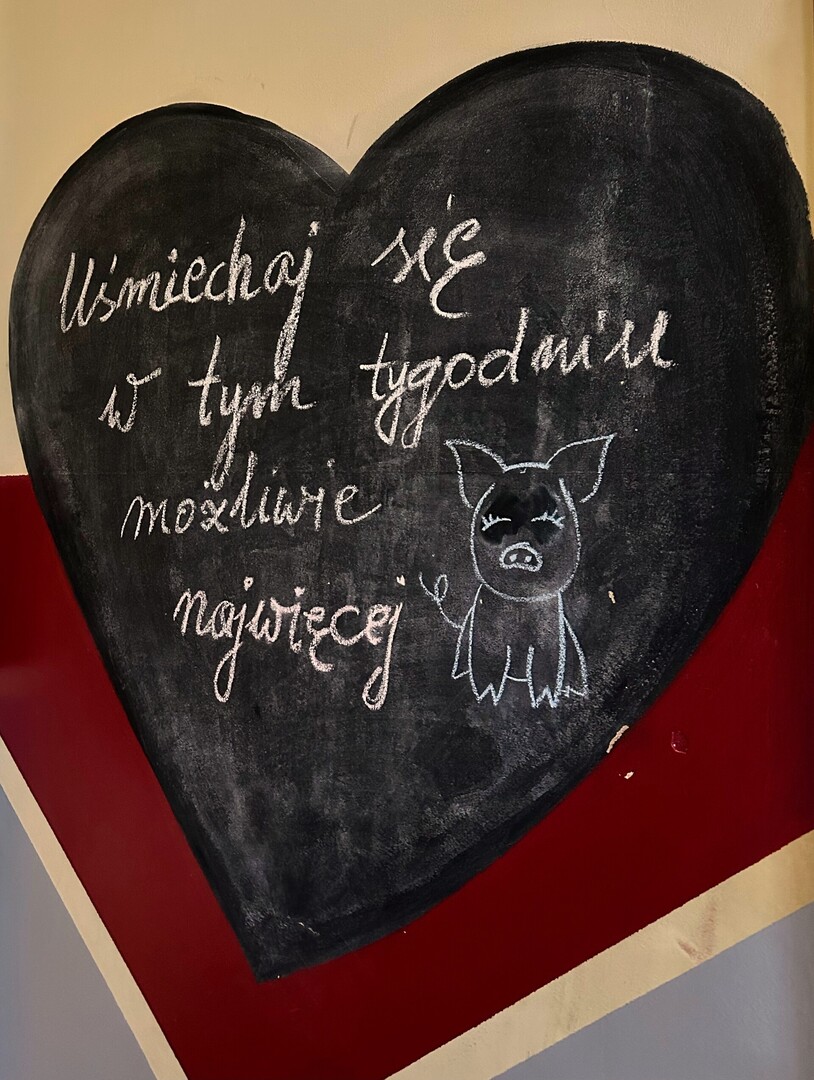 Uśmiechaj się
w tym tygodniu
możliwie
najwięcej